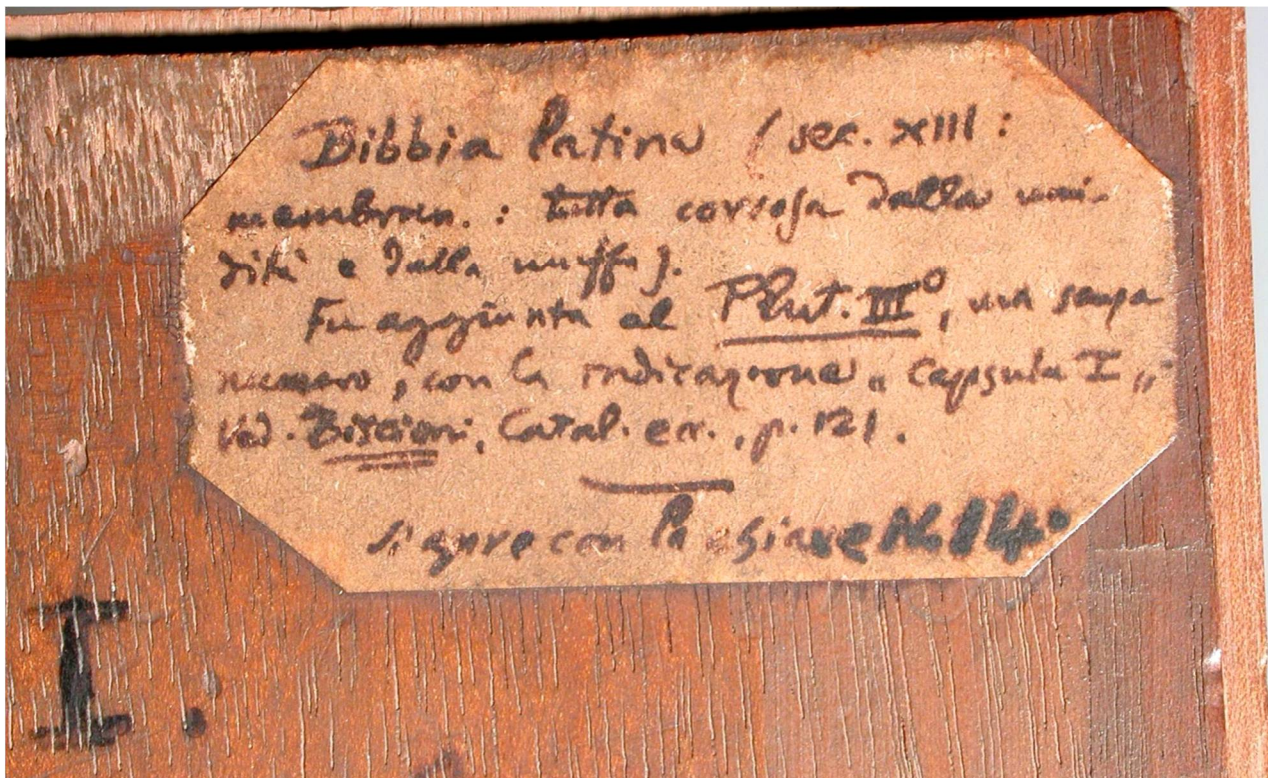 Bibbia latina (sec. XIII:
membran.: tutta corrosa dalla umi-
dità e dalla muffa).
Fu aggiunta al Plut. III°, ma senza
numero, con la indicazione „ Capsula I „:
ved. Biscioni, Catal. ecc., p. 121.
Si apre con la chiave N. 14°
I.